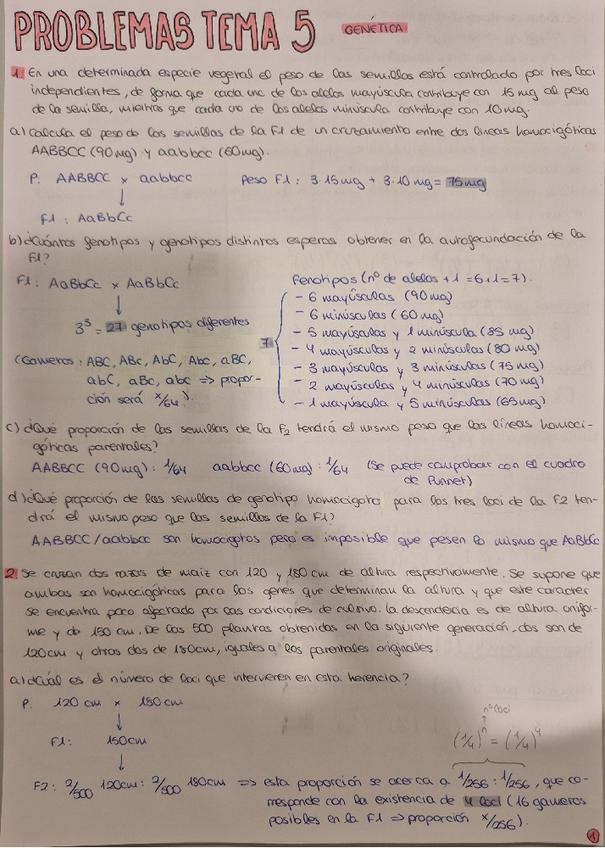 PROBLEMAS TEMA 5 GENÉTICA
1 En una determinada especie vegetal el peso de las semillas está controlado por tres loci
independientes, de forma que cada uno de los alelos mayúscula contribuye con 15 mg al peso
de la semilla, mientras que cada uno de los alelos minúscula contribuye con 10 mg.
a) Calcula el peso de las semillas de la F1 de un cruzamiento entre dos líneas homocigóticas
AABBCC (90mg) y aabbcc (60mg).
P: AABBCC x aabbcc Peso F1: 3·15mg + 3·10mg = 75mg
↓
F1: AaBbCc
b) ¿Cuántos fenotipos y genotipos distintos esperas obtener en la autofecundación de la
F1?
F1: AaBbCc x AaBbCc
↓
3³ = 27 genotipos diferentes
(Gametos: ABC, ABc, AbC, Abc, aBC,
abC, aBc, abc => propor-
ción será x/64).
Fenotipos (nº de alelos + 1 = 6+1 = 7).
7
- 6 mayúsculas (90mg)
- 6 minúsculas (60mg)
- 5 mayúsculas y 1 minúscula (85 mg)
- 4 mayúsculas y 2 minúsculas (80 mg)
- 3 mayúsculas y 3 minúsculas (75 mg)
- 2 mayúsculas y 4 minúsculas (70 mg)
- 1 mayúscula y 5 minúsculas (65mg)
c) ¿Qué proporción de las semillas de la F2 tendrá el mismo peso que las líneas homoci-
góticas parentales?
AABBCC (90mg): 1/64 aabbcc (60mg): 1/64 (Se puede comprobar con el cuadro
de Punnet)
d) ¿Qué proporción de las semillas de genotipo homocigoto para los tres loci de la F2 ten-
drá el mismo peso que las semillas de la F1?
AABBCC/aabbcc son homocigotos pero es imposible que pesen lo mismo que AaBbCc
2 Se cruzan dos razas de maíz con 120 y 180 cm de altura respectivamente. Se supone que
ambas son homocigóticas para los genes que determinan la altura y que este caracter
se encuentra poco afectado por las condiciones de cultivo. La descendecia es de altura unifor-
me y de 150 cm. De las 500 plantas obtenidas en la siguiente generación, dos son de
120cm y otras dos de 180cm, iguales a los parentales originales.
a) ¿Cuál es el número de loci que intervienen en esta herencia?
P: 120 cm x 180 cm
↓
F1: 150cm
↓
nº loci
↑
(1/4)ⁿ = (1/4)⁴
F2: 2/500 120cm : 2/500 180cm => esta proporción se acerca a 1/256 : 1/256, que co-
rresponde con la existencia de 4 loci (16 gametos
posibles en la F1 => proporción x/256).
1